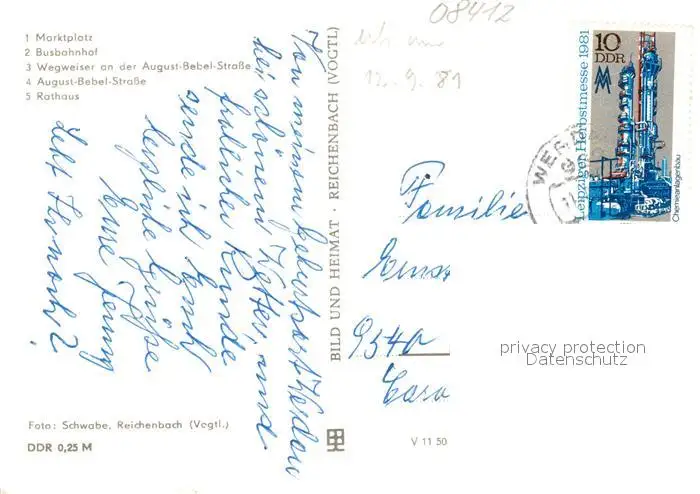 08412
1 Marktplatz
2 Busbahnhof
3 Wegweiser an der August-Bebel-Straße
4 August-Bebel-Straße
5 Rathaus
Von meinem Geburtsort Werdau
bei schönem Wetter und
fröhlicher Runde
sende ich Euch
herzliche Grüße
Eure Jenny
Lebt Ihr noch?
Foto: Schwabe, Reichenbach (Vogtl.)
DDR 0,25 M
BILD UND HEIMAT · REICHENBACH (VOGTL)
V 11 50
12.9.81
Familie
Ernst
9340
privacy protection
Datenschutz
10
DDR
MM
Leipziger Herbstmesse 1981
Chemieanlagenbau
WER